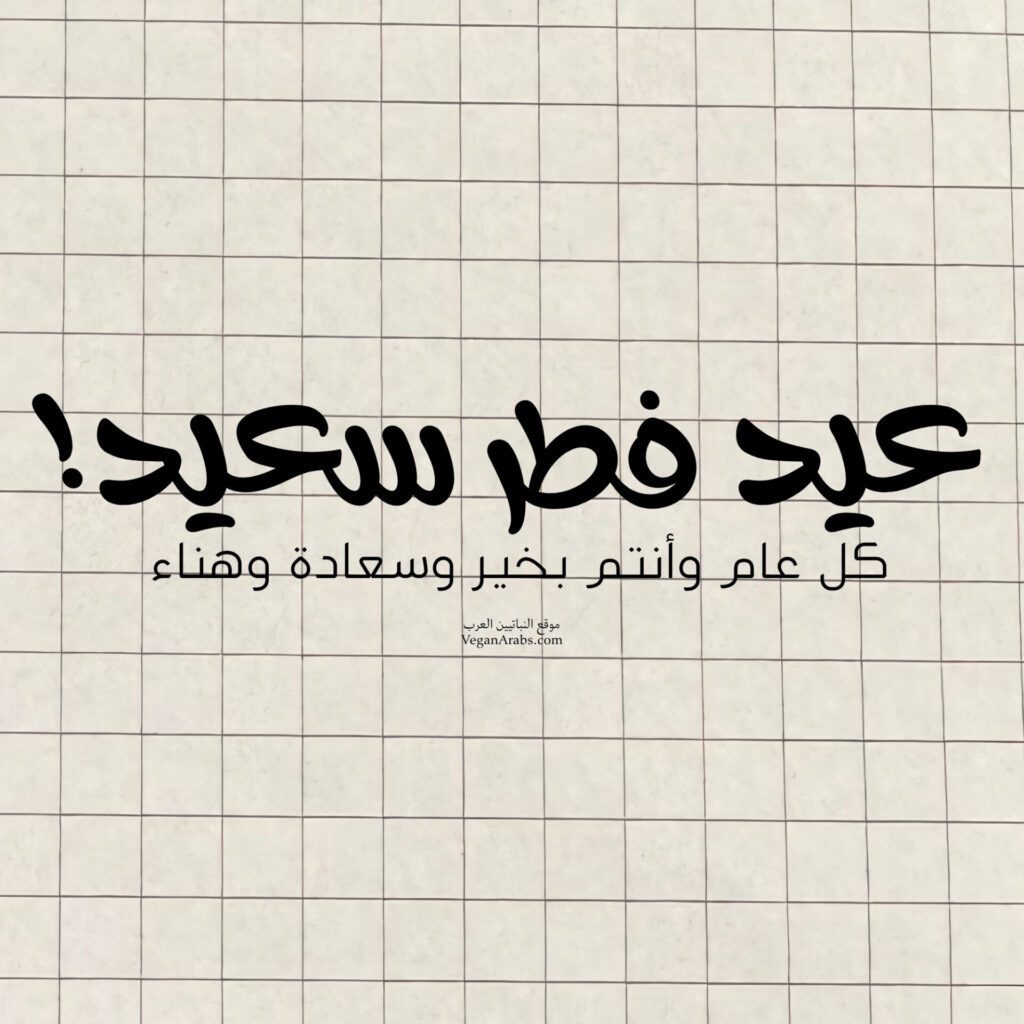 عيد فطر سعيد!
كل عام وأنتم بخير وسعادة وهناء
موقع النباتيين العرب
VeganArabs.com